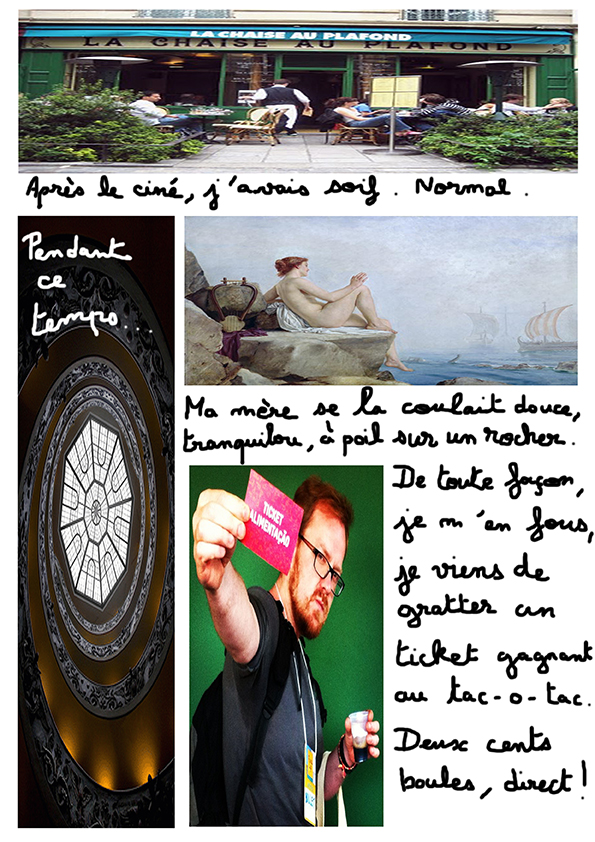 LA CHAISE AU PLAFOND
LA CHAISE AU PLAFOND
Après le ciné, j'avais soif. Normal.
Pendant
ce
temps...
Ma mère se la coulait douce,
tranquilou, à poil sur un rocher.
TICKET
ALIMENTAÇÃO
De toute façon,
je m'en fous,
je viens de
gratter un
ticket gagnant
au tac-o-tac.
Deux cents
boules, direct!